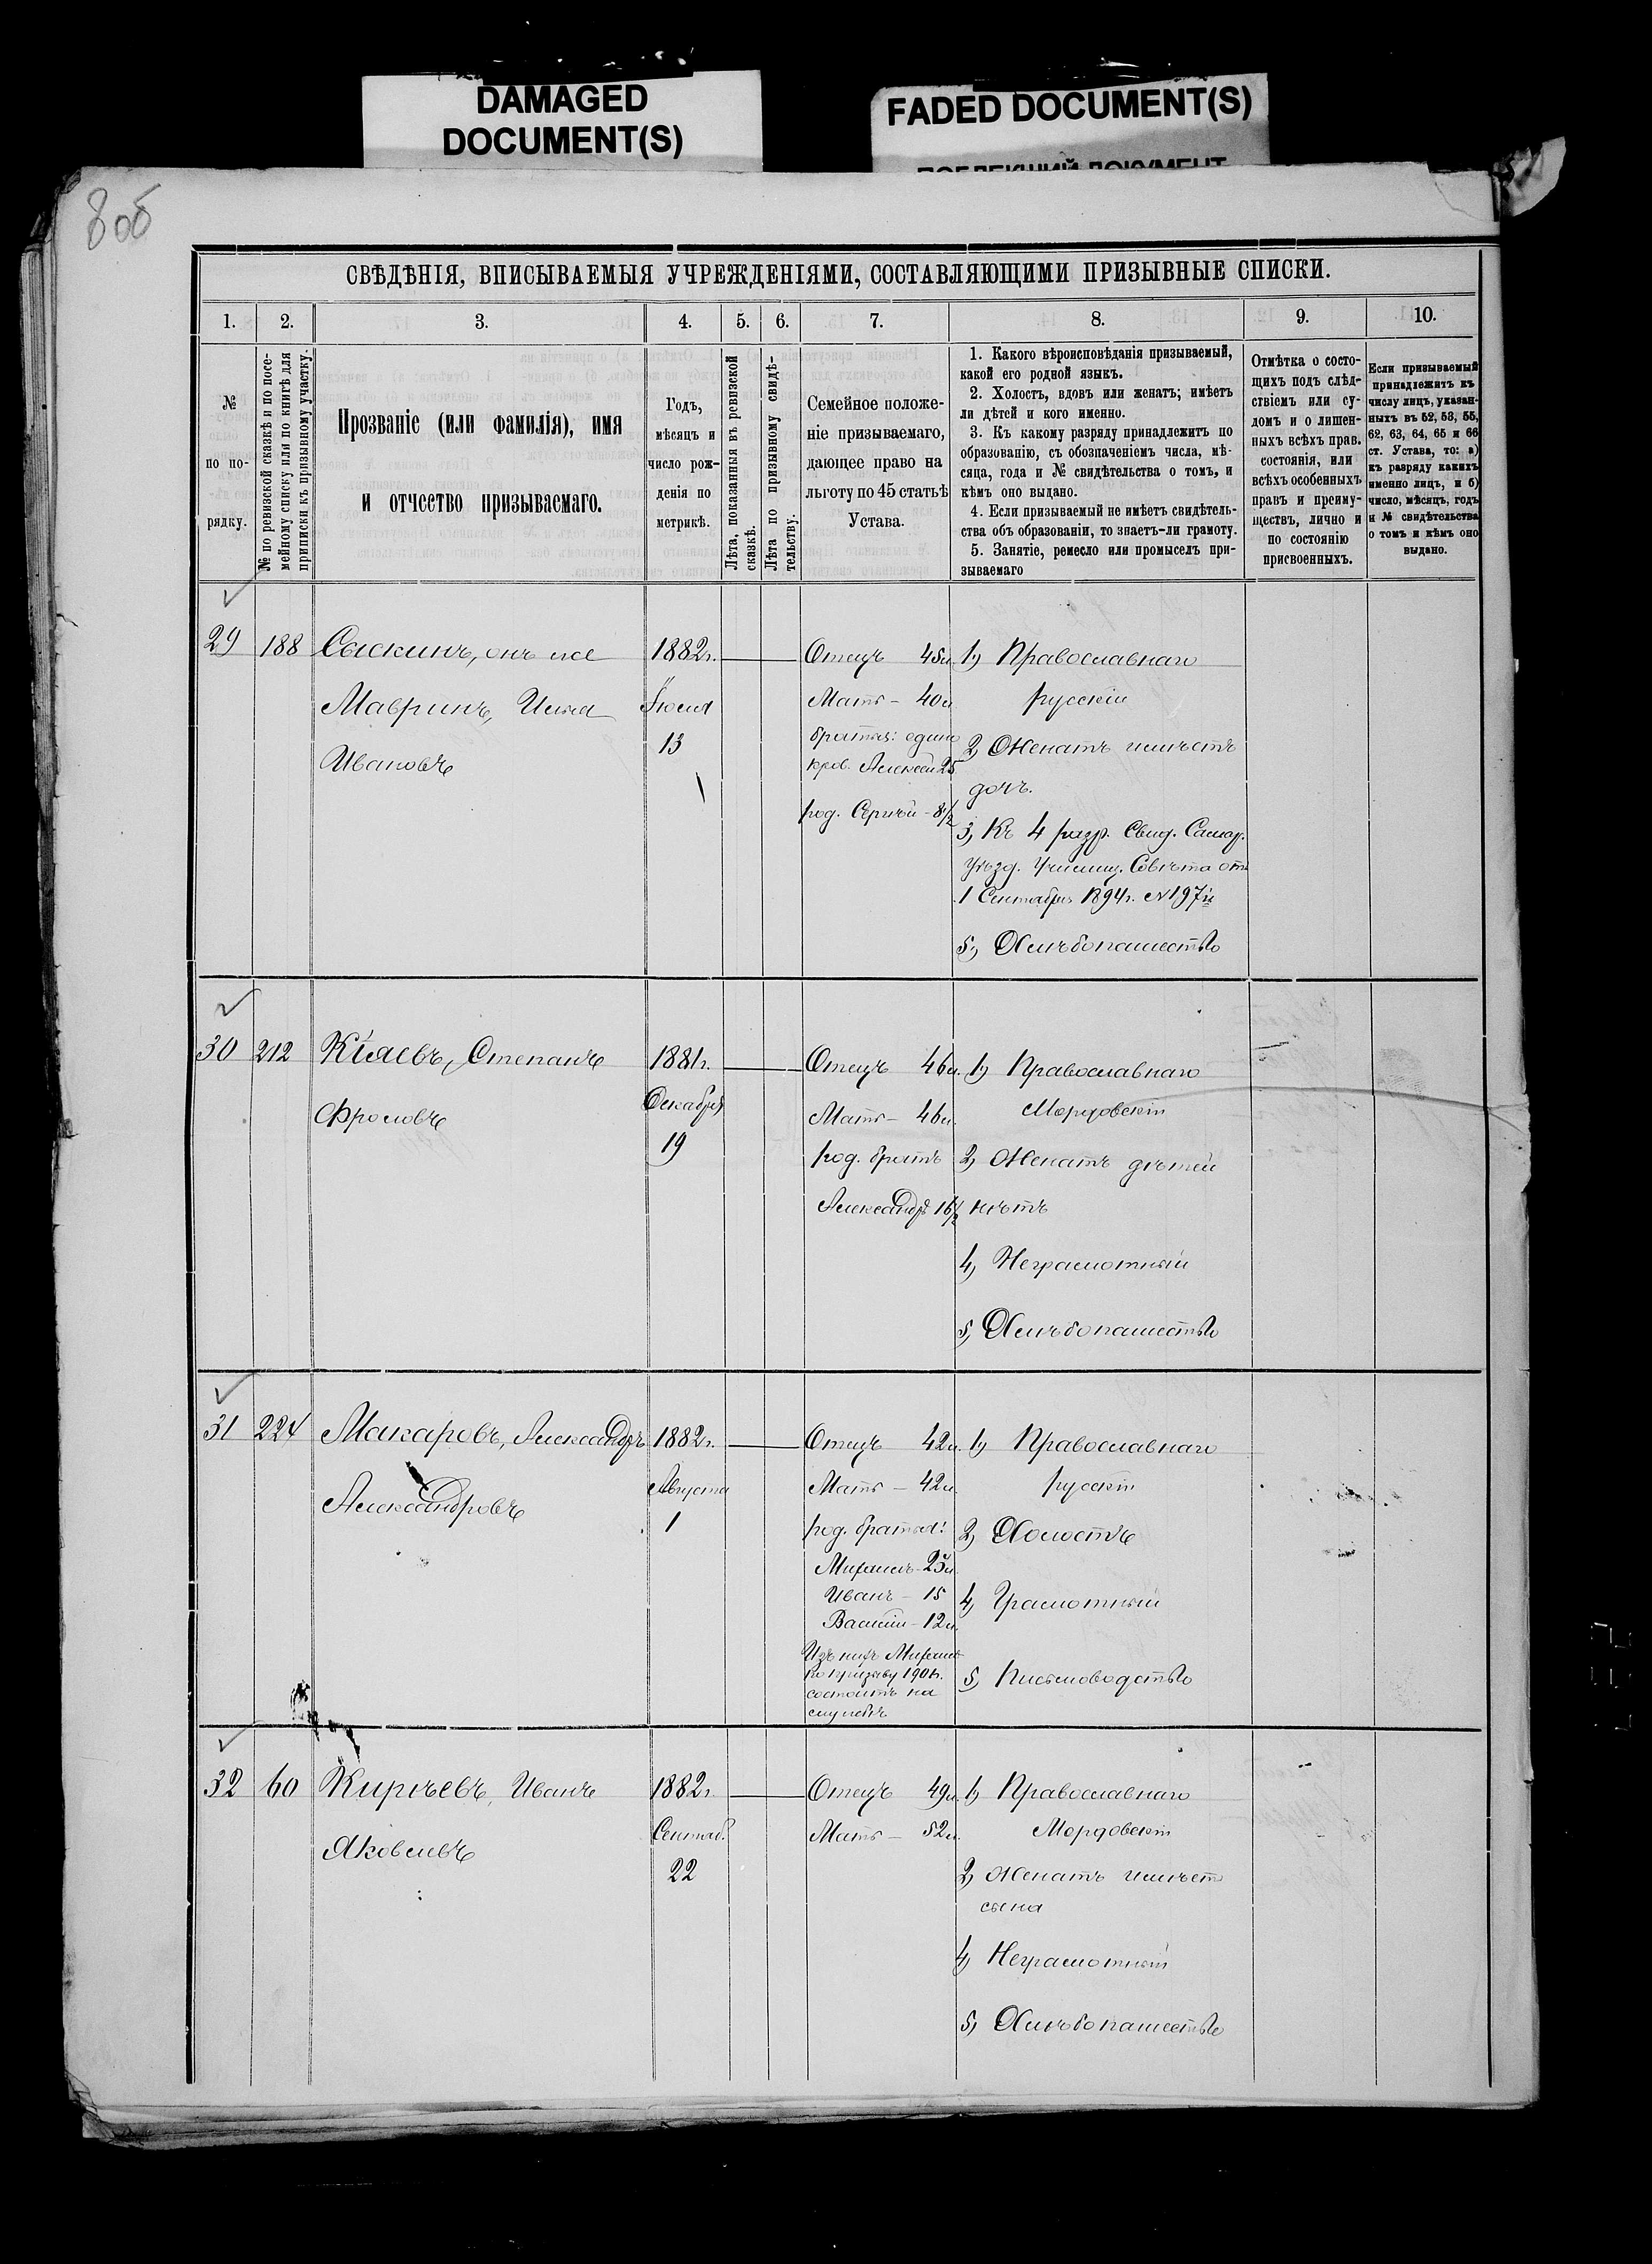 DAMAGED
DOCUMENT(S)
FADED DOCUMENT(S)
806
СВѢДѢНІЯ, ВПИСЫВАЕМЫЯ УЧРЕЖДЕНІЯМИ, СОСТАВЛЯЮЩИМИ ПРИЗЫВНЫЕ СПИСКИ.
1. 2. 3. 4. 5. 6. 7. 8. 9. 10.
№
по по-
рядку.
№ по ревизской сказкѣ и по посе-
мейному списку или по книгѣ для
приписки къ призывному участку.
Прозваніе (или фамилія), имя
и отчество призываемаго.
Годъ,
мѣсяцъ и
число рож-
денія по
метрикѣ.
Лѣта, показанныя въ ревизской
сказкѣ.
Лѣта по призывному свидѣ-
тельству.
Семейное положе-
ніе призываемаго,
дающее право на
льготу по 45 статьѣ
Устава.
1. Какого вѣроисповѣданія призываемый,
какой его родной языкъ.
2. Холостъ, вдовъ или женатъ; имѣетъ
ли дѣтей и кого именно.
3. Къ какому разряду принадлежитъ по
образованію, съ обозначеніемъ числа, мѣ-
сяца, года и № свидѣтельства о томъ, и
кѣмъ оно выдано.
4. Если призываемый не имѣетъ свидѣтель-
ства объ образованіи, то знаетъ-ли грамоту.
5. Занятіе, ремесло или промыселъ при-
зываемаго
Отмѣтка о состо-
щихъ подъ слѣд-
ствіемъ или су-
домъ и о лишен-
ныхъ всѣхъ прав.
состоянія, или
всѣхъ особенныхъ
правъ и преиму-
ществъ, лично и
по состоянію
присвоенныхъ.
Если призываемый
принадлежитъ къ
числу лицъ, указан-
ныхъ въ 52, 53, 55,
62, 63, 64, 65 и 66
ст. Устава, то: а)
къ разряду какихъ
именно лицъ, и б)
число, мѣсяцъ, годъ
и № свидѣтельства
о томъ и кѣмъ оно
выдано.
29 188 Сыскинъ, онъ же
Мавринъ, Илья
Ивановъ
1882г.
Іюля
13
Отецъ 45л
Мать - 40л
братья: едино
кров. Алексѣй 25
род. Сергѣй - 8½
1) Православнаго
русскій
2) Женатъ имѣетъ
дочь.
3) Къ 4 разр. Свид. Самар.
Уѣзд. Училищ. Совѣта отъ
1 Сентября 1894г. №197й
5) Хлѣбопашество
30 212 Кіяевъ, Степанъ
Фроловъ
1881г.
Декабря
19
Отецъ 46л.
Мать - 46л.
род. братъ
Александръ 16½
1) Православнаго
Мордовскій
2) Женатъ дѣтей
нѣтъ
4) Неграмотный
5) Хлѣбопашество
31 224 Макаровъ, Александръ
Александровъ
1882г.
Августа
1
Отецъ 42л.
Мать - 42л.
род. братья:
Михаилъ - 23л.
Иванъ - 15
Василій - 12л.
Изъ нихъ Михаилъ
по призыву 190 г.
состоитъ на
службѣ
1) Православнаго
русскій
2) Холостъ
4) Грамотный
5) Письмоводство
32 60 Кирѣевъ, Иванъ
Яковлевъ
1882г.
Сентяб.
22
Отецъ 49л.
Мать - 52л.
1) Православнаго
Мордовскій
2) Женатъ имѣетъ
сына
4) Неграмотный
5) Хлѣбопашество